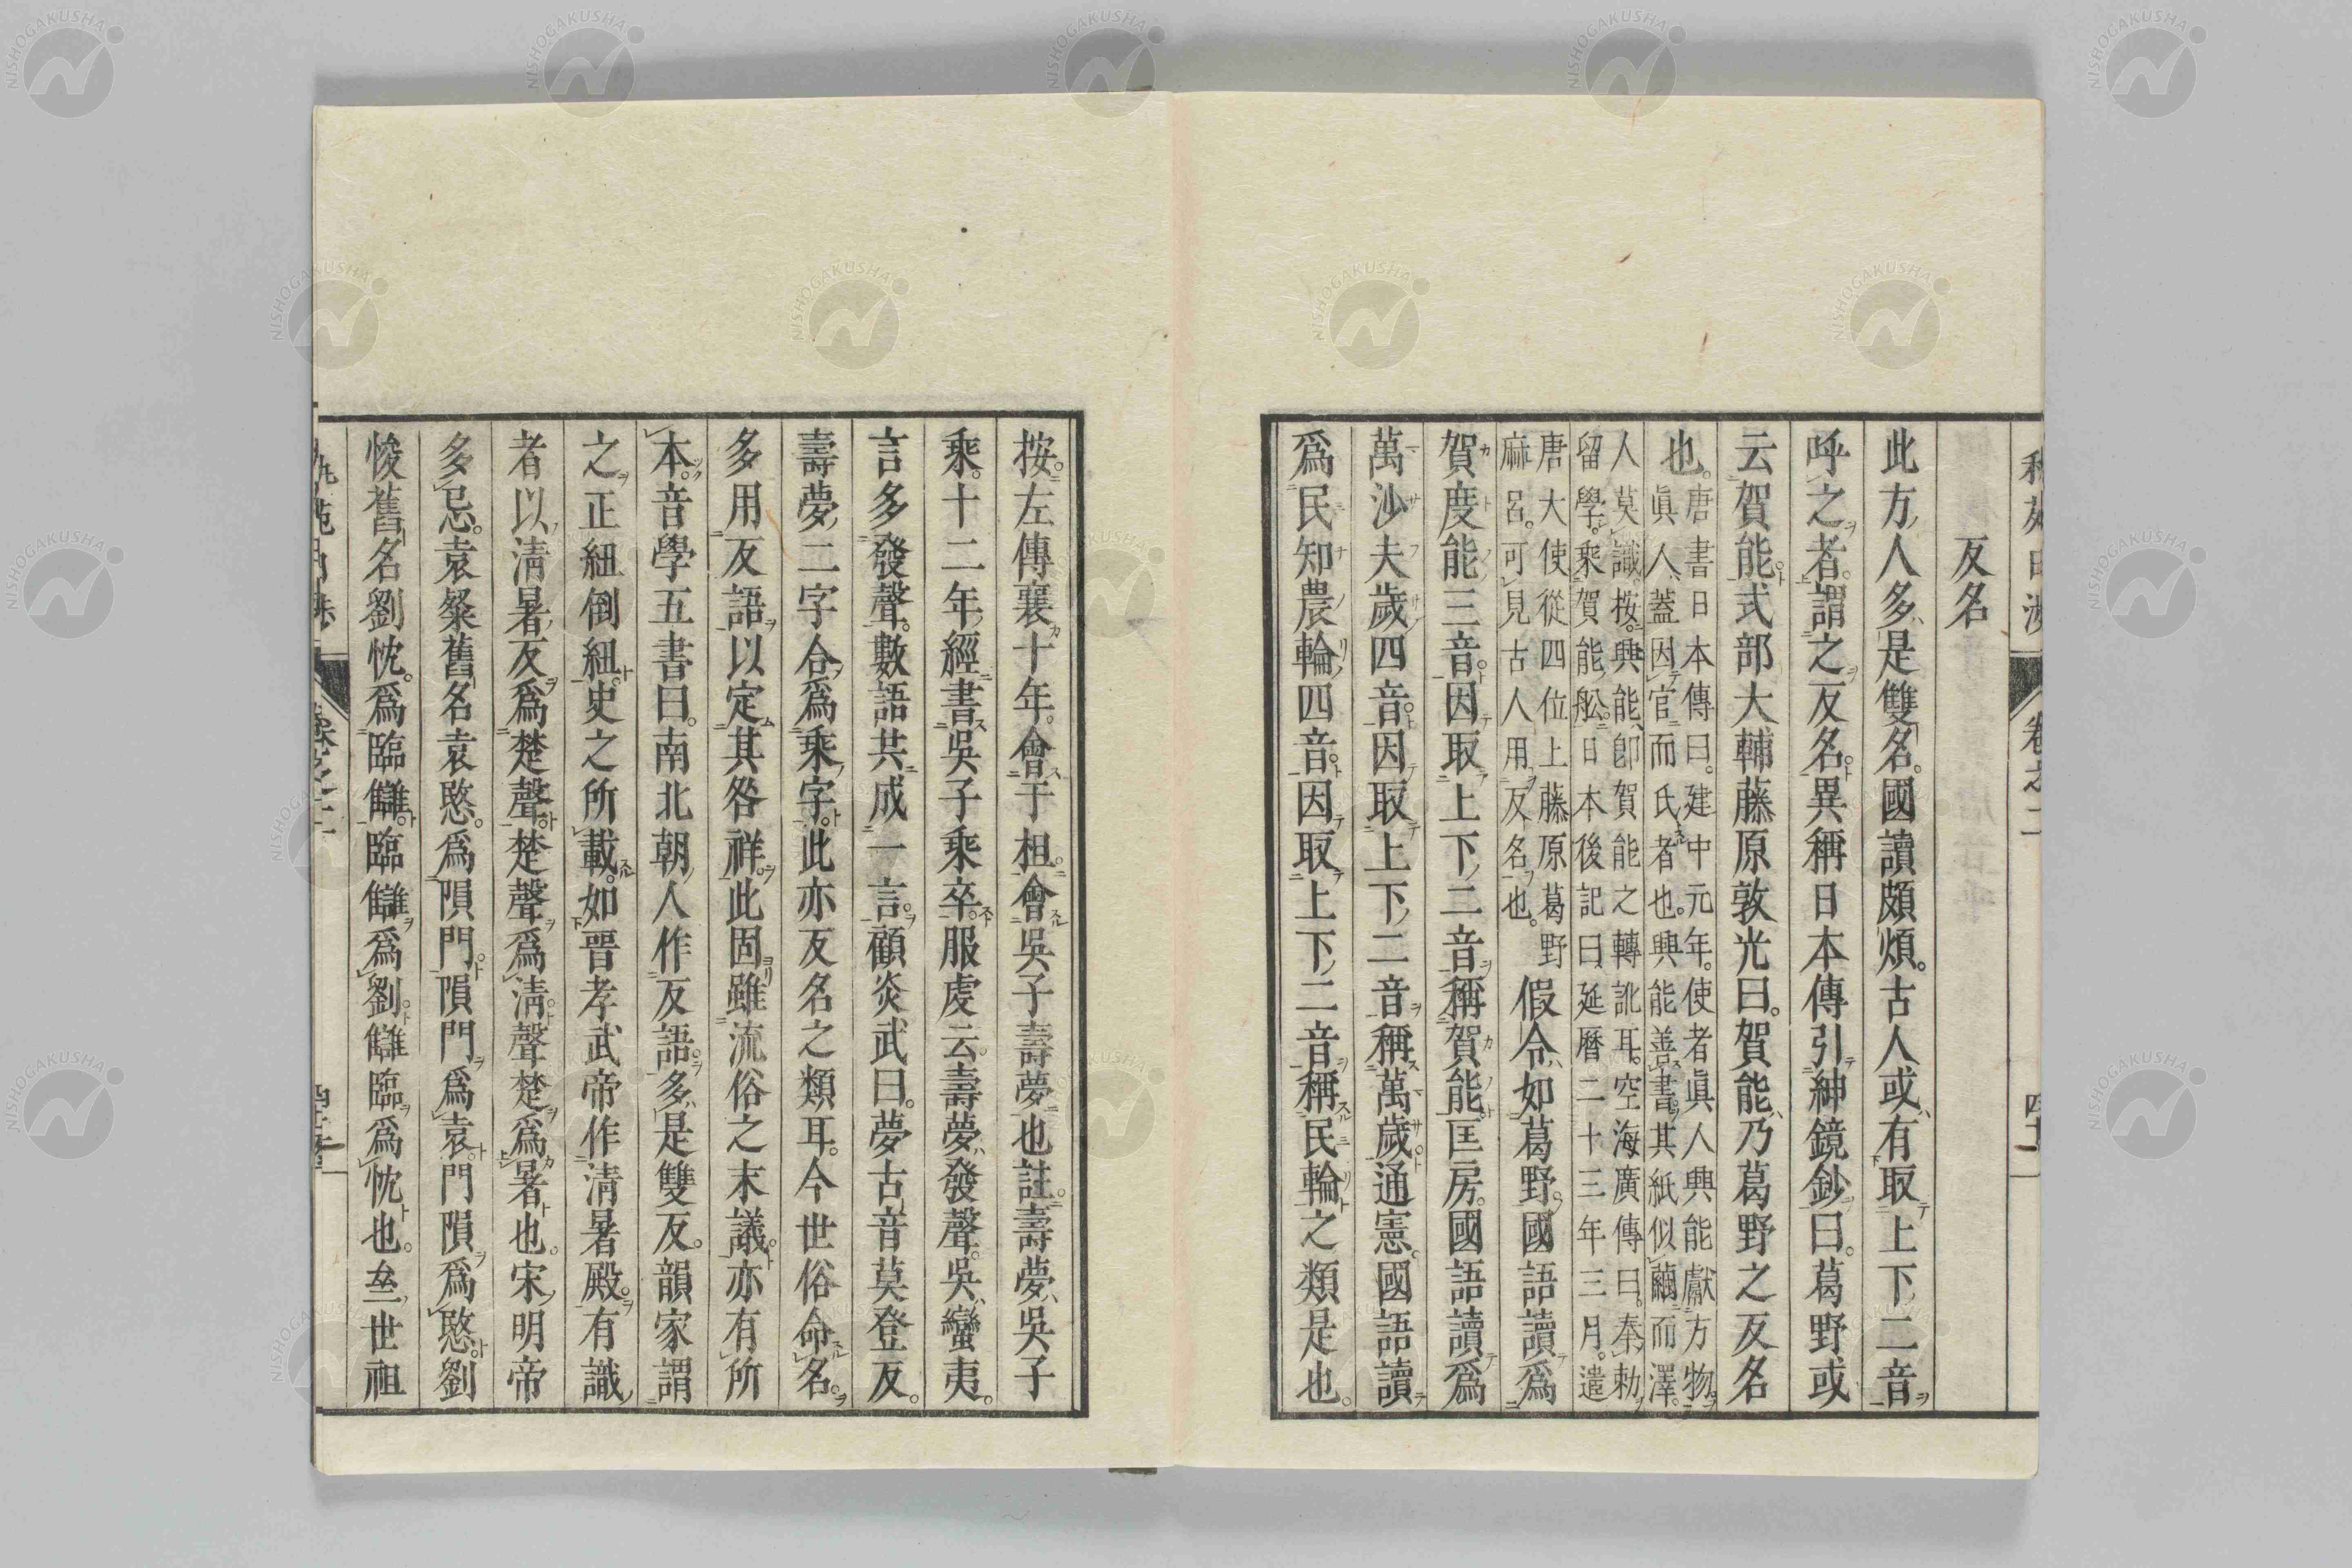 反名
此方人多是雙名。國讀頗煩。古人或有取上下二音
呼之者。謂之反名。異稱日本傳引紳鏡鈔曰。葛野或
云賀能。式部大輔藤原敦光曰。賀能乃葛野之反名
也。唐書日本傳曰。建中元年。使者眞人興能獻方物。
眞人蓋因官而氏者也。興能善書。其紙似繭而澤。
人莫識。按。興能卽賀能之轉訛耳。空海廣傳曰。奉勅
留學。乘賀能舩。日本後記曰。延曆二十三年三月。遣
唐大使從四位上藤原葛野
麻呂。可見古人用反名也。
假令如葛野。國語讀爲
賀度能三音。因取上下二音稱賀能。匡房。國語讀爲
萬沙夫歲四音。因取上下二音稱萬歲。通憲。國語讀
爲民知農輪四音。因取上下二音稱民輪之類是也。
按。左傳襄十年。會于柤。會吳子壽夢也。註。壽夢吳子
乘。十二年。經書吳子乘卒。服虔云。壽夢發聲。吳蠻夷。
言多發聲。數語共成一言。顧炎武曰。夢古音莫登反。
壽夢二字合爲乘字。此亦反名之類耳。今世俗命名。
多用反語以定其咎祥。此固雖流俗之末議。亦有所
本。音學五書曰。南北朝人作反語。多是雙反。韻家謂
之正紐倒紐。史之所載。如晉孝武帝作淸暑殿。有識
者以淸暑反爲楚聲。楚聲爲淸。聲楚爲暑也。宋明帝
多忌。袁粲舊名袁愍。爲隕門。隕門爲袁。門隕爲愍。劉
悛舊名劉忱。爲臨讎。臨讎爲劉。讎臨爲忱也。叁世祖
卷之二